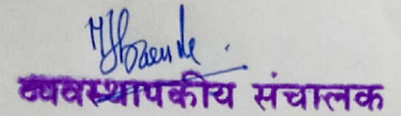 व्यवस्थापकीय संचालक